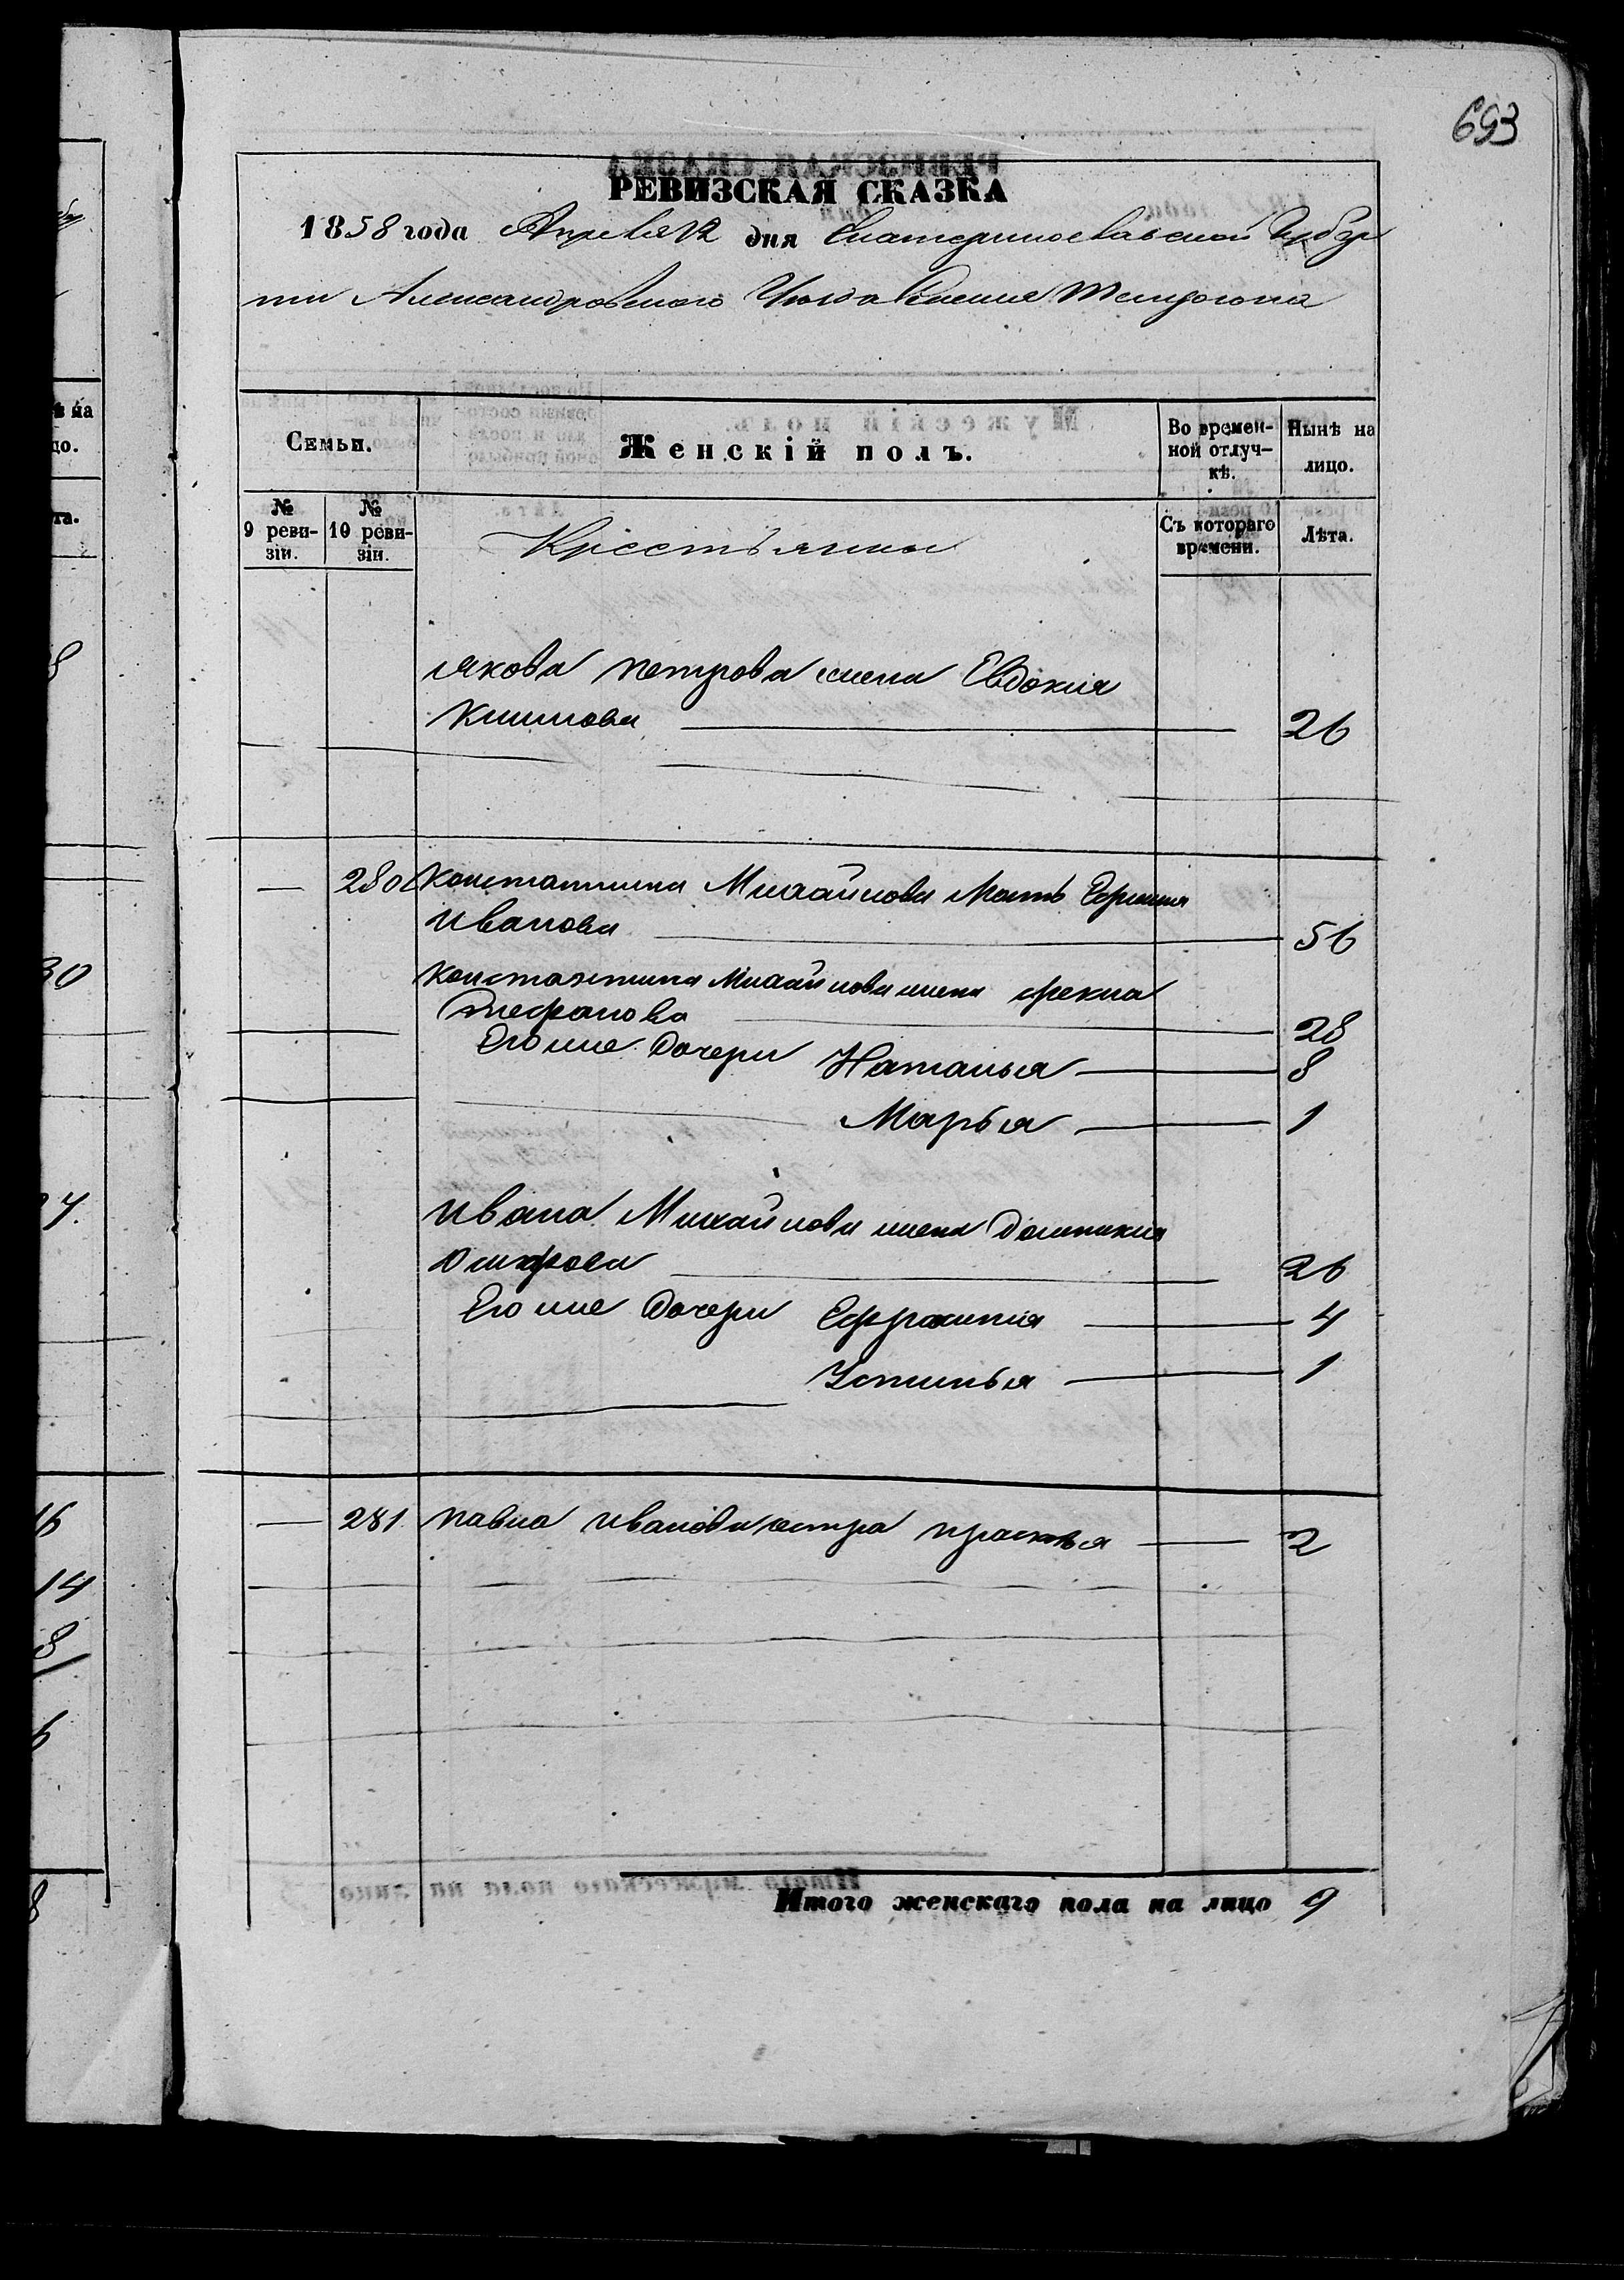 693
РЕВИЗСКАЯ СКАЗКА
1858 года Апреля 12 дня Екатеринославской Губер
нии Александровского Уезда Селения Темрюка
Семьи.
Женскій полъ.
Во времен-
ной отлуч-
кѣ.
Нынѣ на
лицо.
№
9 реви-
зіи.
№
10 реви-
зіи.
Крестьяны
Съ котораго
времени.
Лѣта.
якова петрова жена Евдокия
Климова 26
— 280 Константина Михайлова Мать
Иванова 56
Константина Михайлова жена Фекла
Стефанова 28
Его же Дочери Наталья 8
Марья 1
Ивана Михайлова жена Домникия
26
Его же Дочери Ефросиния 4
Устинья 1
— 281 павла Иванова сестра прасковья 2
Итого женскаго пола на лицо 9